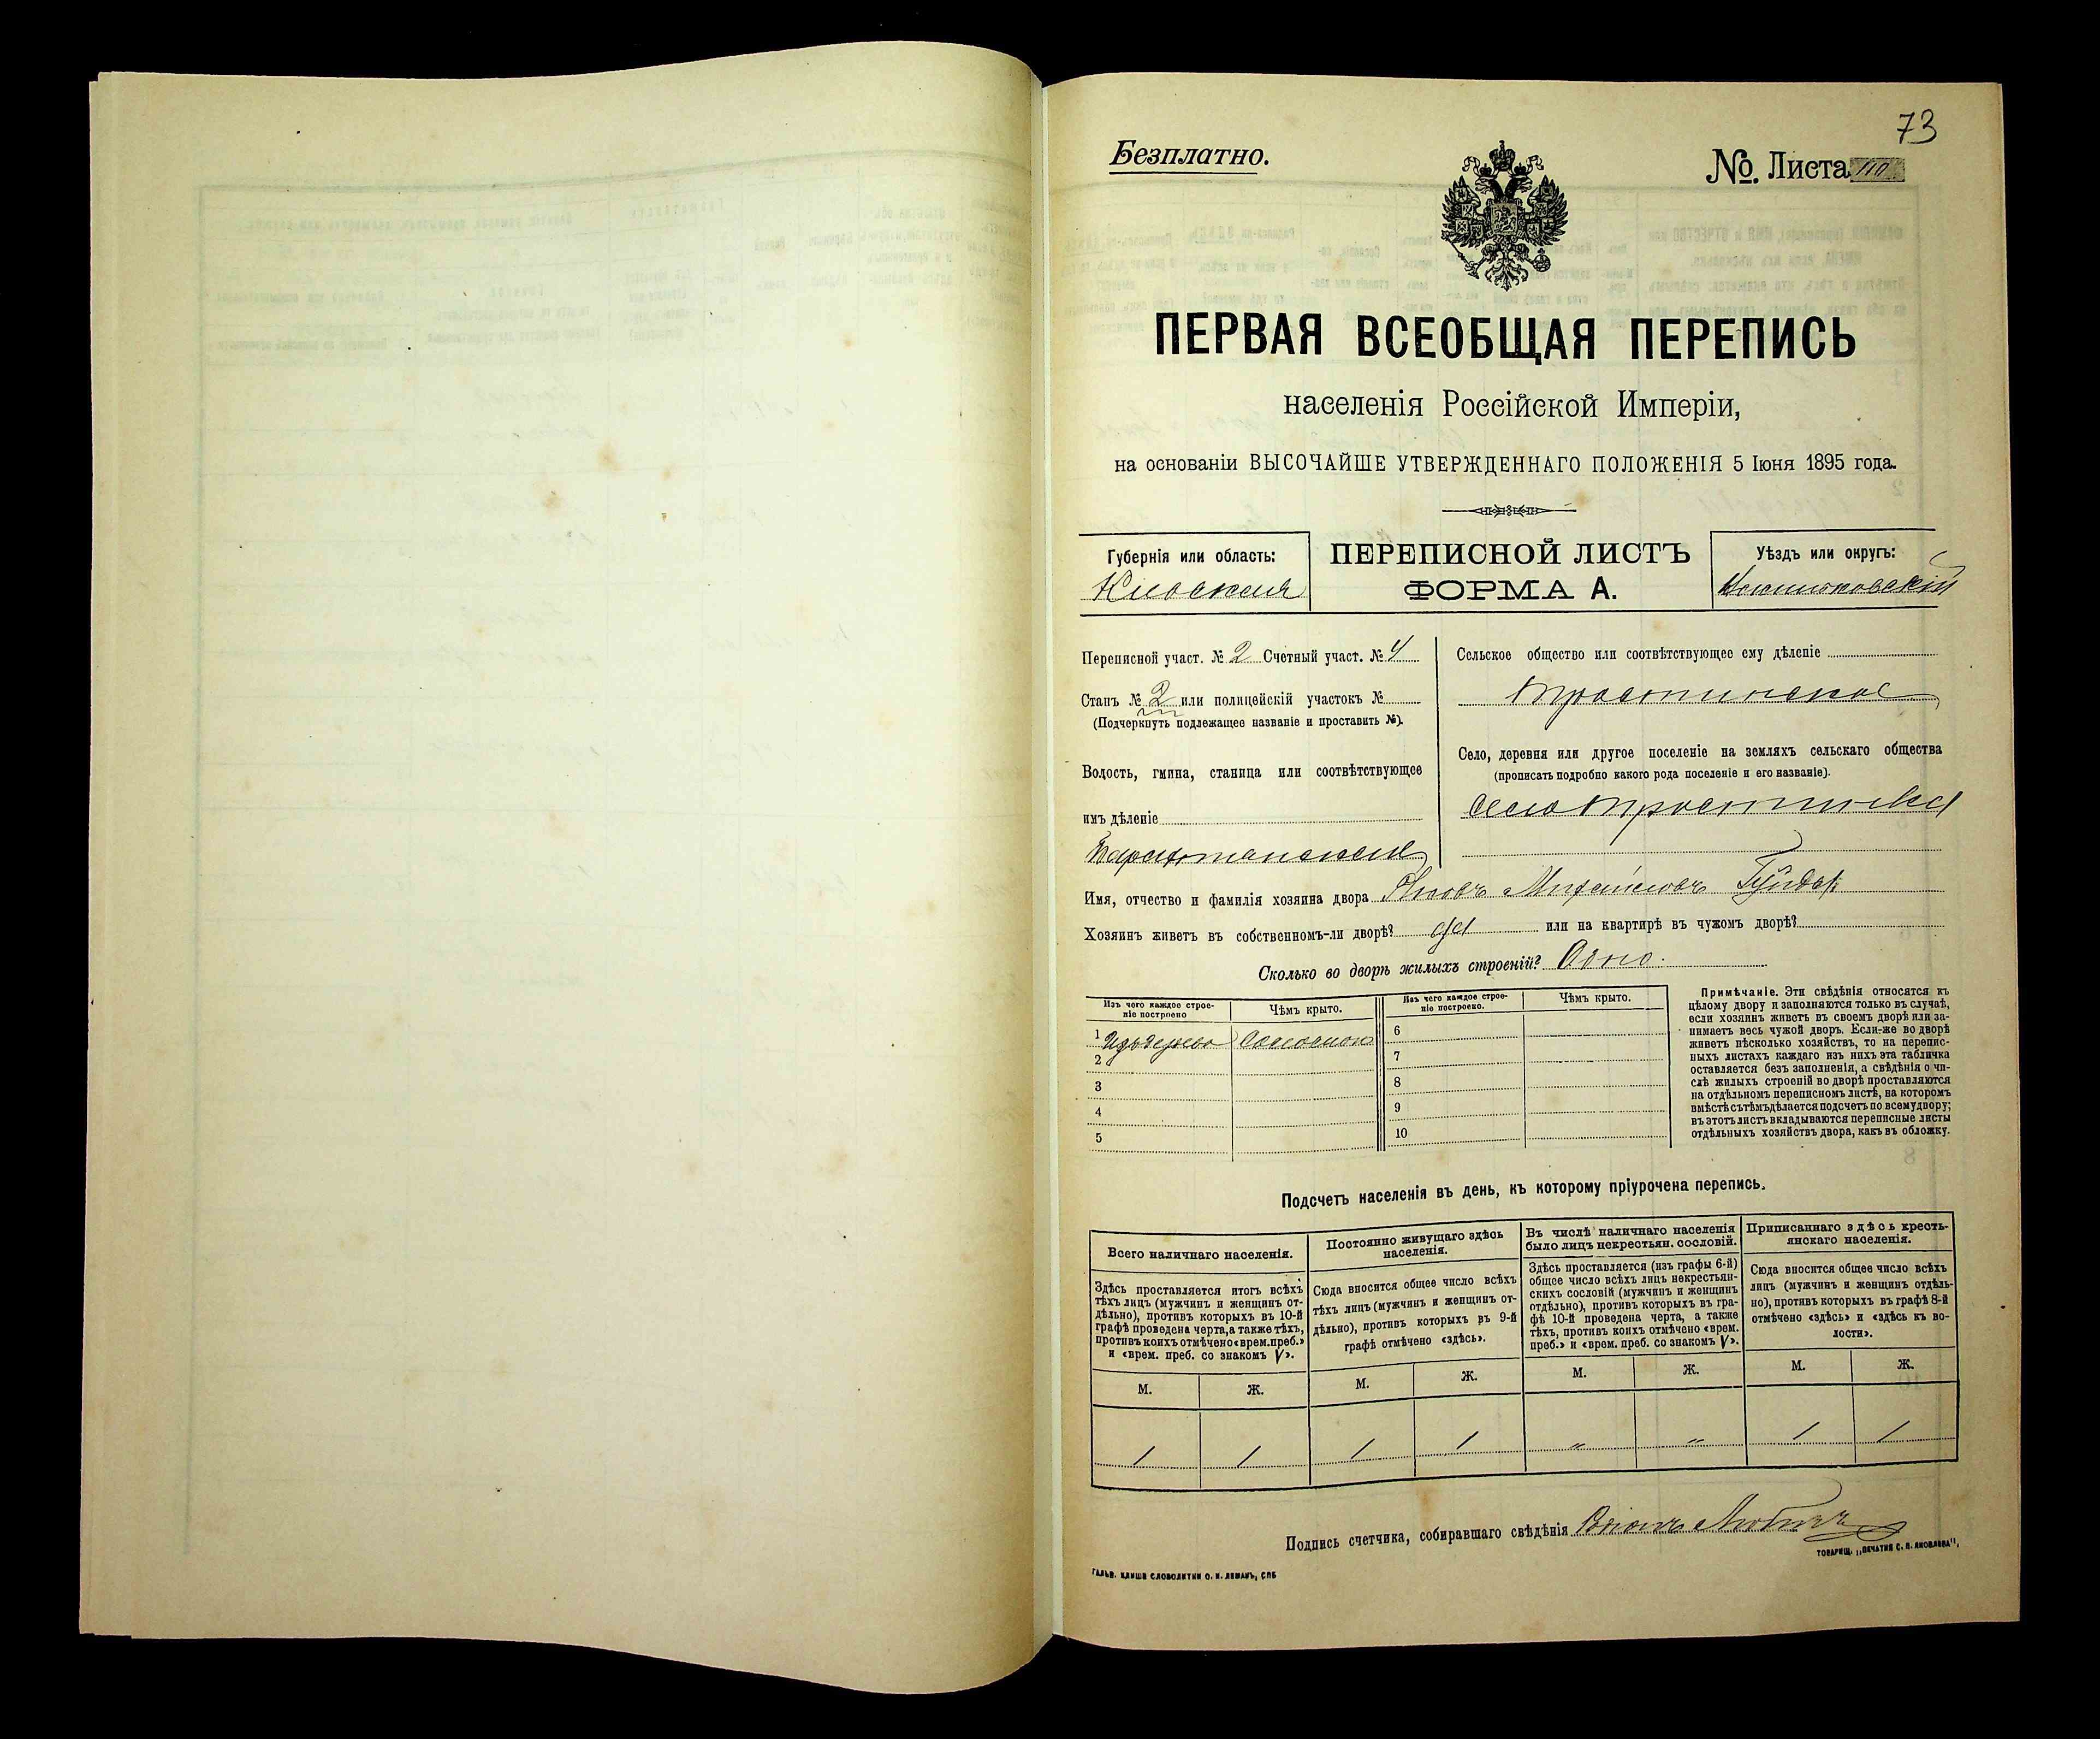 73
Безплатно.
№. Листа 110
ПЕРВАЯ ВСЕОБЩАЯ ПЕРЕПИСЬ
населенія Россійской Имперіи,
на основаніи ВЫСОЧАЙШЕ УТВЕРЖДЕННАГО ПОЛОЖЕНІЯ 5 Іюня 1895 года.
Губернія или область:
Кіевская
ПЕРЕПИСНОЙ ЛИСТЪ
ФОРМА А.
Уѣздъ или округъ:
Васильковскій
Переписной участ. № 2 Счетный участ. № 4
Станъ № 2 или полицейскій участокъ №
(Подчеркнуть подлежащее названіе и проставить №).
Волость, гмина, станица или соотвѣтствующее
имъ дѣленіе
Сельское общество или соотвѣтствующее ему дѣленіе
Тростинское
Село, деревня или другое поселеніе на земляхъ сельскаго общества
(прописать подробно какого рода поселеніе и его названіе).
село Тростинка
Имя, отчество и фамилія хозяина двора Яковъ Михайловъ
Хозяинъ живетъ въ собственномъ-ли дворѣ? да или на квартирѣ въ чужомъ дворѣ?
Сколько во дворѣ жилыхъ строеній? Одно.
Изъ чего каждое строе-
ніе построено
Чѣмъ крыто.
Изъ чего каждое строе-
ніе построено.
Чѣмъ крыто.
1 Изъ дерева Соломою
2
3
4
5
6
7
8
9
10
Примѣчаніе. Эти свѣдѣнія относятся къ
цѣлому двору и заполняются только въ случаѣ,
если хозяинъ живетъ въ своемъ дворѣ или за-
нимаетъ весь чужой дворъ. Если-же во дворѣ
живетъ нѣсколько хозяйствъ, то на перепис-
ныхъ листахъ каждаго изъ нихъ эта табличка
оставляется безъ заполненія, а свѣдѣнія о чи-
слѣ жилыхъ строеній во дворѣ проставляются
на отдѣльномъ переписномъ листѣ, на которомъ
вмѣстѣ съ тѣмъ дѣлается подсчетъ по всему двору;
въ этотъ листъ вкладываются переписные листы
отдѣльныхъ хозяйствъ двора, какъ въ обложку.
Подсчетъ населенія въ день, къ которому пріурочена перепись.
Всего наличнаго населенія.
Здѣсь проставляется итогъ всѣхъ
тѣхъ лицъ (мужчинъ и женщинъ от-
дѣльно), противъ которыхъ въ 10-й
графѣ проведена черта, а также тѣхъ,
противъ коихъ отмѣчено «врем. преб.»
и «врем. преб. со знакомъ V».
Постоянно живущаго здѣсь
населенія.
Сюда вносится общее число всѣхъ
тѣхъ лицъ (мужчинъ и женщинъ от-
дѣльно), противъ которыхъ въ 9-й
графѣ отмѣчено «здѣсь».
Въ числѣ наличнаго населенія
было лицъ некрестьян. сословій.
Здѣсь проставляется (изъ графы 6-й)
общее число всѣхъ лицъ некрестьян-
скихъ сословій (мужчинъ и женщинъ
отдѣльно), противъ которыхъ въ гра-
фѣ 10-й проведена черта, а также
тѣхъ, противъ коихъ отмѣчено «врем.
преб.» и «врем. преб. со знакомъ V».
Приписаннаго здѣсь кресть-
янскаго населенія.
Сюда вносится общее число всѣхъ
лицъ (мужчинъ и женщинъ отдѣль-
но), противъ которыхъ въ графѣ 8-й
отмѣчено «здѣсь» и «здѣсь къ во-
лости».
М. Ж. М. Ж. М. Ж. М. Ж.
1 1 1 1 " " 1 1
Подпись счетчика, собиравшаго свѣдѣнія
ТОВАРИЩ. „ПЕЧАТНЯ С. П. ЯКОВЛЕВА",
ГАЛЬВ. КЛИШЕ СЛОВОЛИТНИ О. И. ЛЕМАНЪ, СПБ